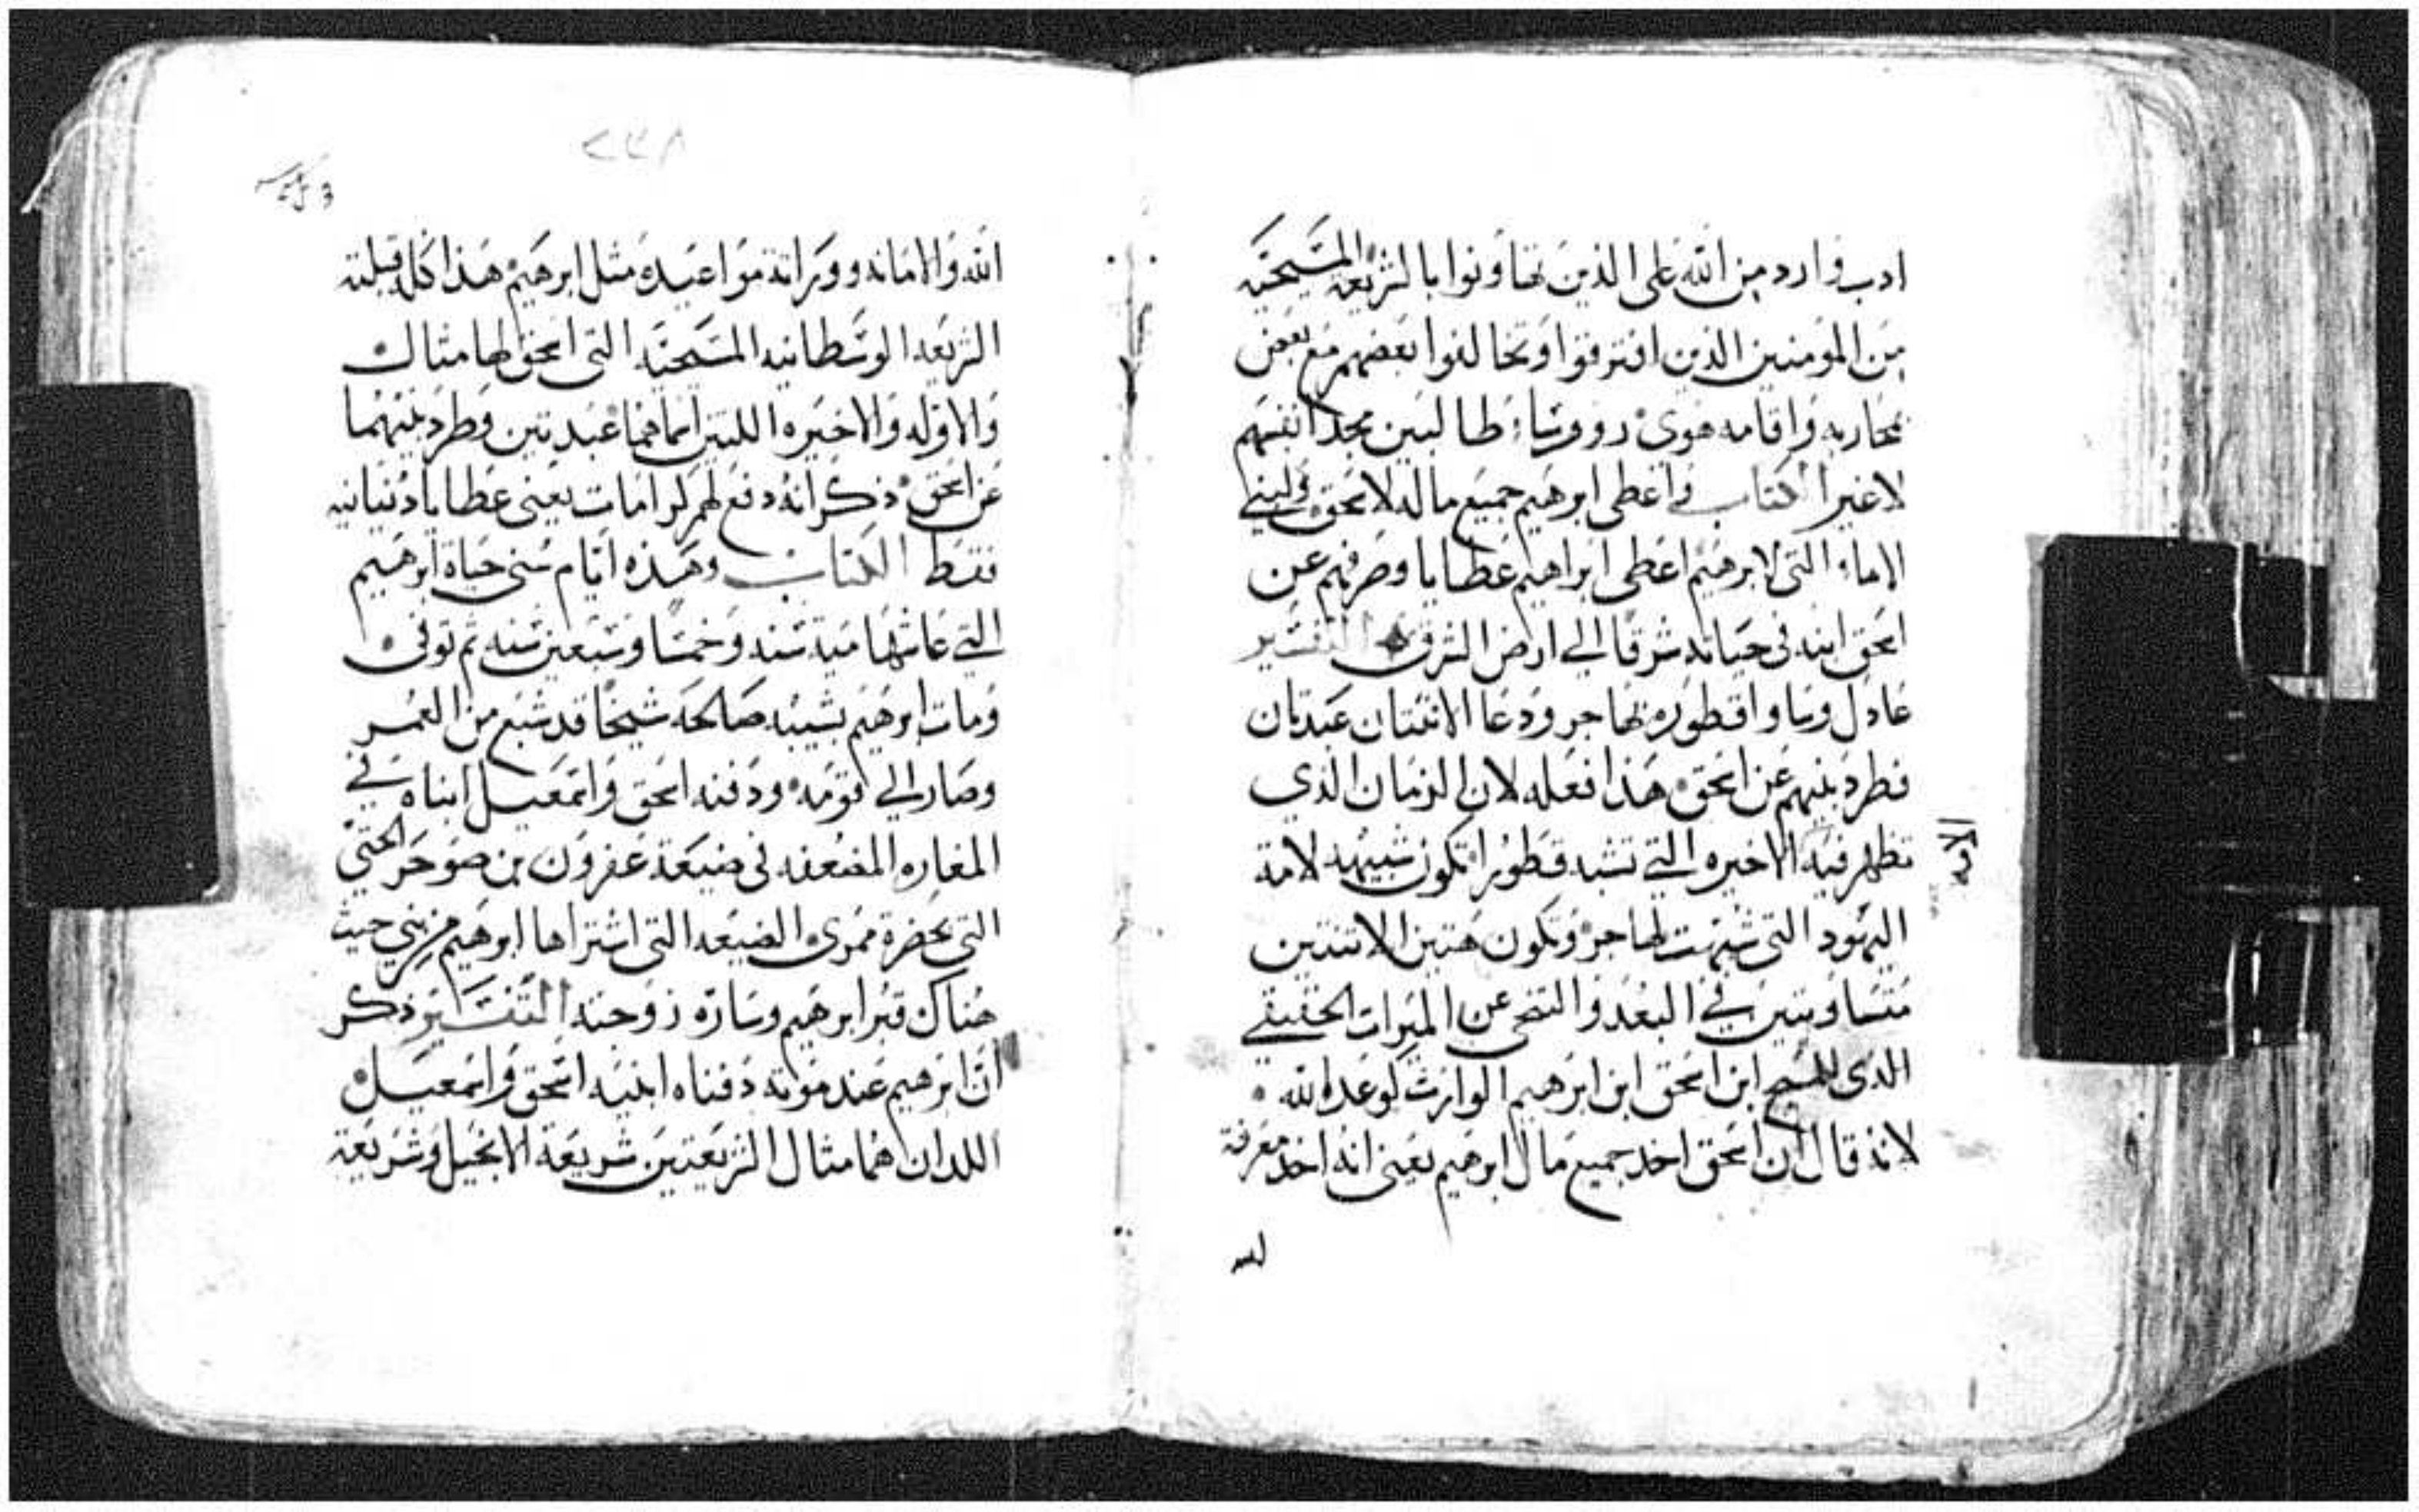 ادب وارد من الله على الذين تهاونوا بالشريعه المسيحيه
من المومنين الذين افترقوا وتخالفوا بعضهم مع بعض
محاربه واقامه هوى روسا طالبين مجد انفسهم
لا غير الكتاب واعطى ابرهيم جميع ماله لاسحق ولبني
الاماء التي لابرهيم اعطى ابراهيم عطايا وصرفهم عن
اسحق ابنه في حياته شرقا الى ارض الشرق التفسير
عادل وسا واقطوره بهاجر ودعا الاثنتان عبدتان
فطرد بنيهم عن اسحق هذا فعله لان الزمان الذي
تظهر فيه الاخيره التي تشبه قطورا تكون شبيهه لامة
الامه
اليهود التي شبهت لهاجر وتكون هتين الاثنتين
متساويتين في البعد والتنحي عن الميراث الحقيقي
الذي للمسيح ابن اسحق ابن ابرهيم الوارث لوعد الله
لانه قال ان اسحق اخد جميع مال ابرهيم يعني انه اخد معرفة
٢٣٨
الله والامانه ووراتة مواعيده مثل ابرهيم هذا كله قبلته
الشريعه الوسطانيه المسيحيه التي اسحق لها مثال
والاوله والاخيره اللتين اسماهما عبدتين وطرد بنيهما
عن اسحق ذكر انه دفع لهم كرامات يعني عطايا دنيانيه
فقط الكتاب وهذه ايام سني حياة ابرهيم
التي عاشها مية سنه وخمسا وسبعين سنه ثم توفى
ومات ابرهيم بشيبه صالحه شيخا قد شبع من العمر
وصار الى قومه ودفنه اسحق واسمعيل ابناه في
المغاره المضعفه في ضيعة عفرون بن صوحر الحتي
التي بحضرة ممرى الضيعه التي اشتراها ابرهيم من بني حيث
هناك قبر ابرهيم وساره زوجته التفسير ذكر
ان ابرهيم عند موته دفناه ابنيه اسحق واسمعيل
اللدان هما مثال الشريعتين شريعة الانجيل وشريعة